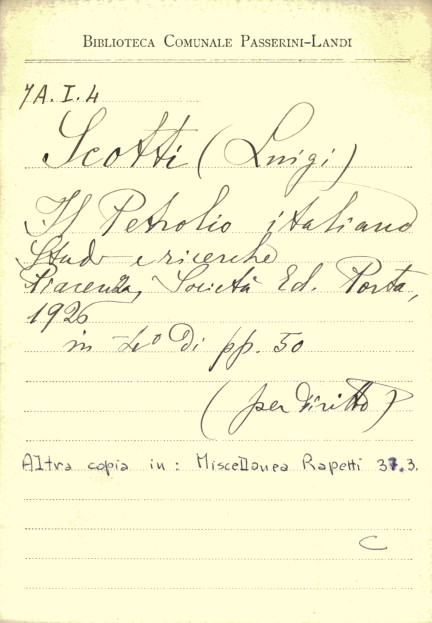 BIBLIOTECA COMUNALE PASSERINI-LANDI
7A.I.4
Scotti (Luigi)
Il Petrolio italiano
Studi e ricerche
Piacenza, Società Ed. Porta,
1926
in 4º di pp. 50
(per diritto)
Altra copia in: Miscellanea Rapetti 37.3.
C